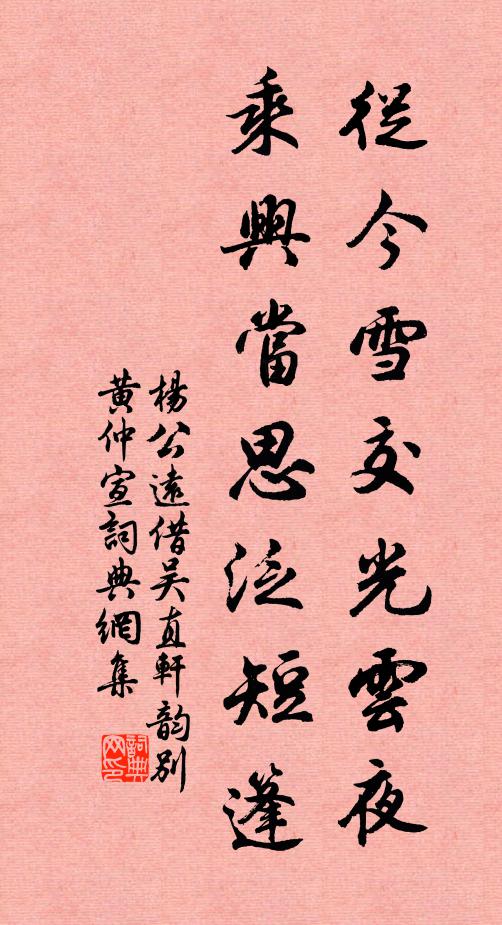 從今雪交光雲夜
乘興當思泛短篷
楊公遠借吴直軒韵别
黄仲宣詞典網集
詞典网印